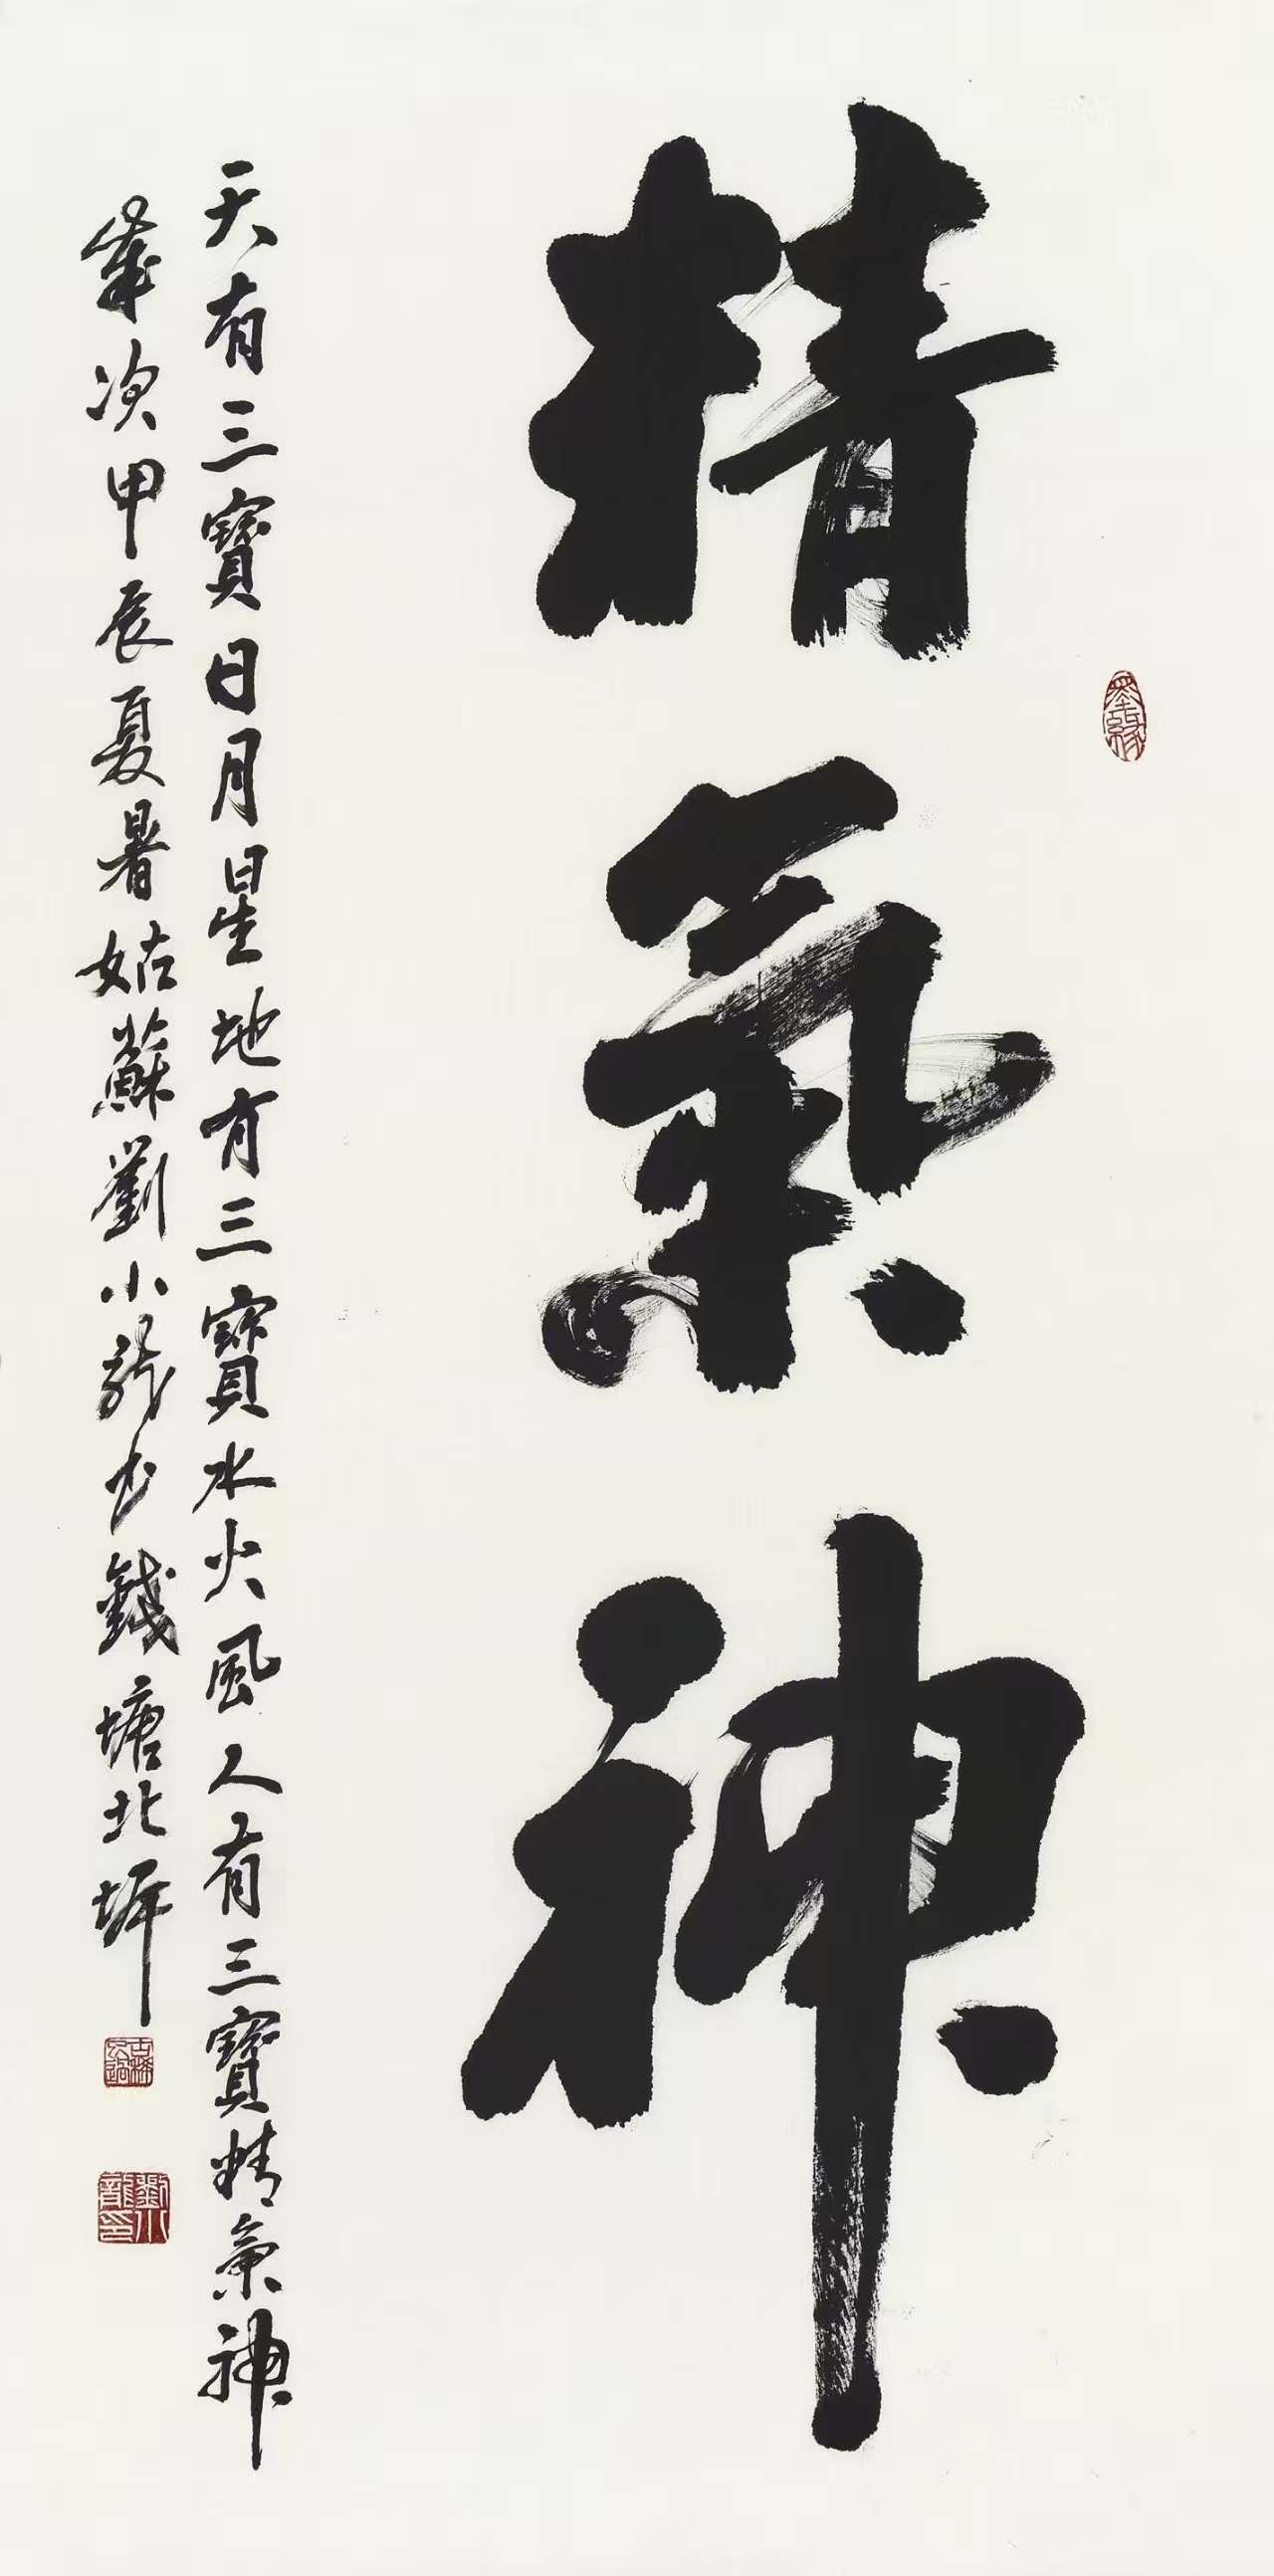 精氣神
天有三寶日月星地有三寶水火風人有三寶精氣神
歲次甲辰夏暑姑蘇劉小龍書錢塘北墀
墨緣
劉小龍印